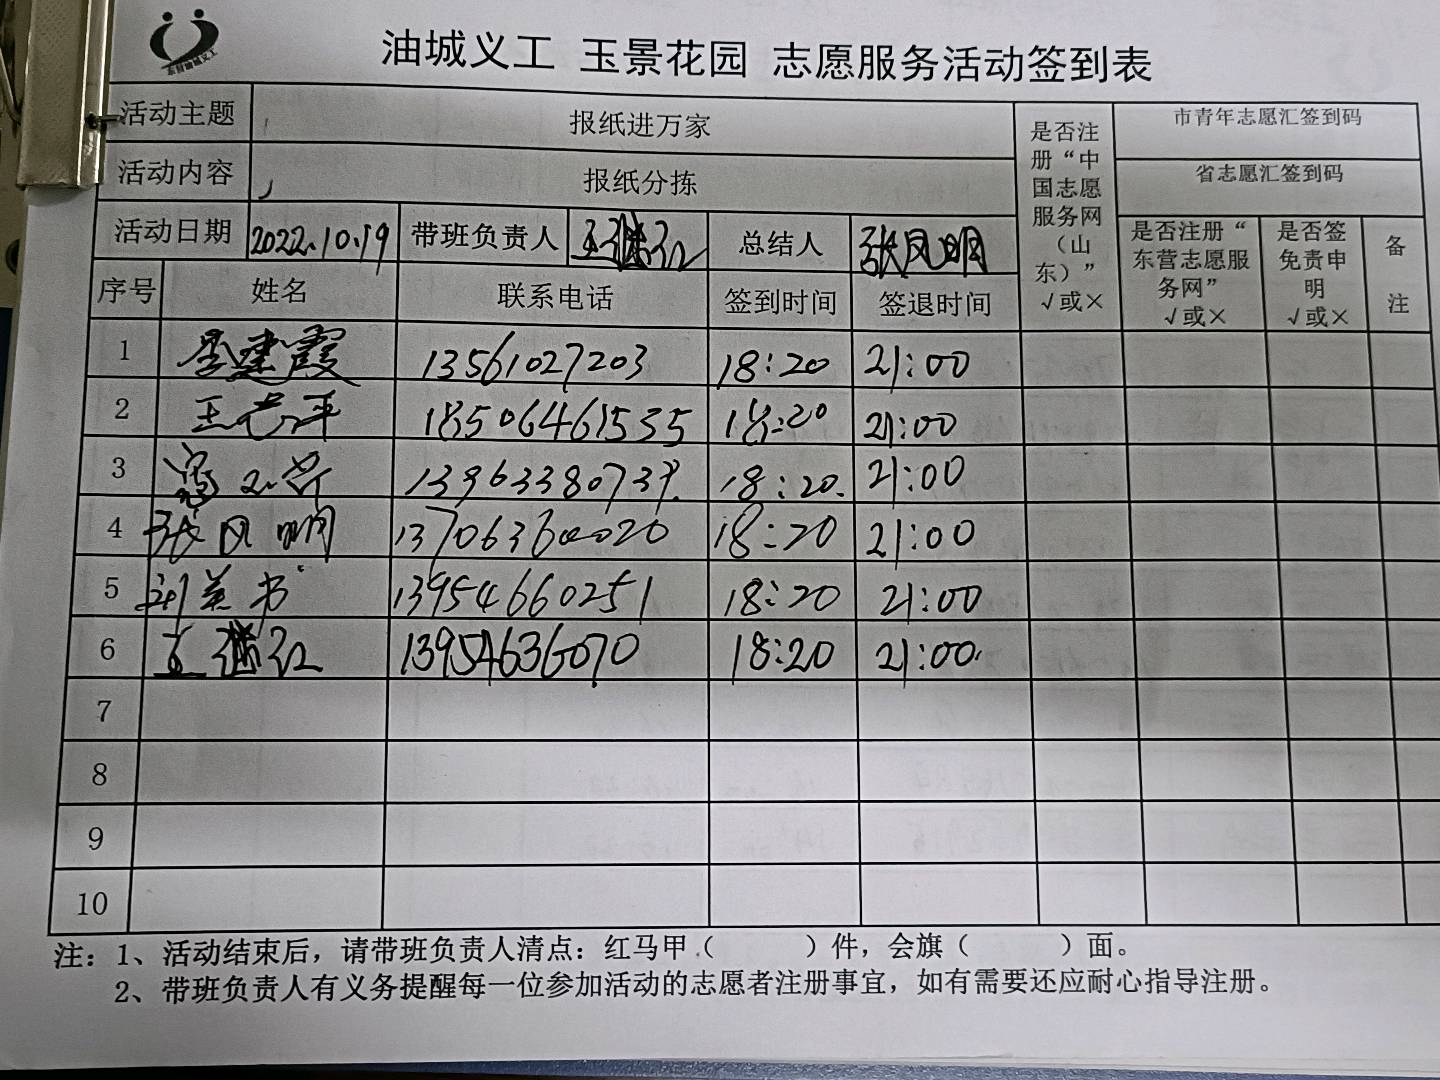 油城义工 玉景花园 志愿服务活动签到表
活动主题 报纸进万家 是否注册“中国志愿服务网（山东）”√或× 市青年志愿汇签到码
活动内容 报纸分拣 省志愿汇签到码
活动日期 2022.10.19 带班负责人 王继红 总结人 张凤明 是否注册“东营志愿服务网”√或× 是否签免责申明√或× 备注
序号 姓名 联系电话 签到时间 签退时间
1 李建霞 13561027203 18:20 21:00
2 王 平 18506461535 18:20 21:00
3 18:20. 21:00
4 张凤明 18:20 21:00
5 13954660251 18:20 21:00
6 王继红 13954636070 18:20 21:00.
7
8
9
10
注：1、活动结束后，请带班负责人清点：红马甲（ ）件，会旗（ ）面。
2、带班负责人有义务提醒每一位参加活动的志愿者注册事宜，如有需要还应耐心指导注册。